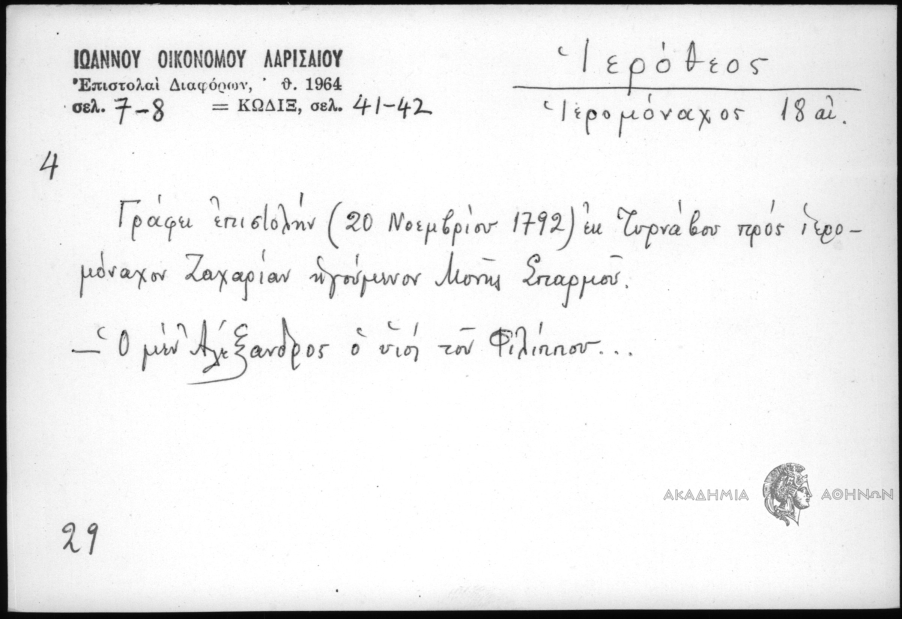 ΙΩΑΝΝΟΥ ΟΙΚΟΝΟΜΟΥ ΛΑΡΙΣΑΙΟΥ
Ἐπιστολαὶ Διαφόρων, ϑ. 1964
σελ. 7-8 = ΚΩΔΙΞ, σελ. 41-42
Ἱερόθεος
Ἱερομόναχος 18 αἰ.
4
Γράφει ἐπιστολήν (20 Νοεμβρίου 1792) ἐκ Τυρνάβου πρός ἱερο-
μόναχον Ζαχαρίαν ἡγούμενον Μονῆς Σπαρμοῦ.
– Ὁ μὲν Ἀλέξανδρος ὁ υἱός τοῦ Φιλίππου...
ΑΚΑΔΗΜΙΑ ΑΘΗΝΩΝ
29